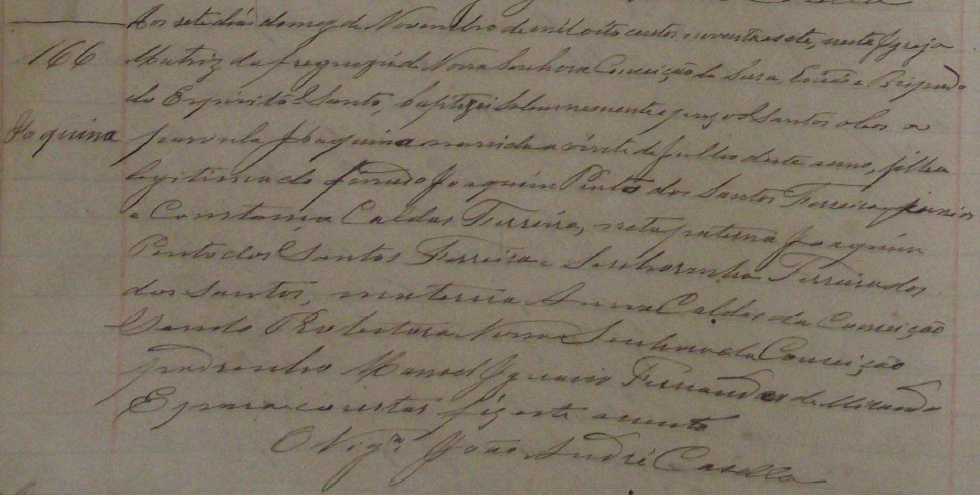 166
Joaquina
Aos sete dias do mez de Novembro de mil oito centos noventa e sete, nesta Igreja
Matriz da freguezia de Nossa Senhora Conceição da Serra, Bispado
do Espirito Santo, baptizei solemnemente e puz os Santos oleos a
parvula Joaquina nascida a vinte de Julho deste anno, filha
legitima do finado Joaquim Pinto dos Santos Ferreira junior
e Constança Caldas Ferreira, neta paterna Joaquim
Pinto dos Santos Ferreira e Senhorinha Ferreira dos
dos Santos, materna Anna Caldas da Conceição
Sendo Protectora Nossa Senhora da Conceição
padrinho Manoel Ignacio Fernandes de Miranda
E para constar fiz este assento
O Vigr.º João André Casella